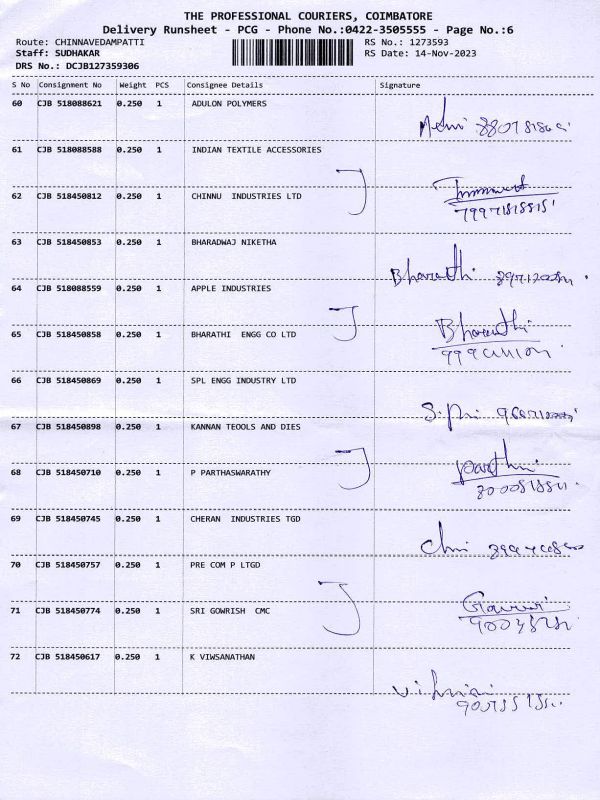 THE PROFESSIONAL COURIERS, COIMBATORE
Delivery Runsheet - PCG - Phone No.:0422-3505555 - Page No.:6
Route: CHINNAVEDAMPATTI RS No.: 1273593
Staff: SUDHAKAR RS Date: 14-Nov-2023
DRS No.: DCJB127359306
S No Consignment No Weight PCS Consignee Details Signature
60 CJB 518088621 0.250 1 ADULON POLYMERS
61 CJB 518088588 0.250 1 INDIAN TEXTILE ACCESSORIES
62 CJB 518450812 0.250 1 CHINNU INDUSTRIES LTD
63 CJB 518450853 0.250 1 BHARADWAJ NIKETHA
Bharathi
64 CJB 518088559 0.250 1 APPLE INDUSTRIES
Bharathi
65 CJB 518450858 0.250 1 BHARATHI ENGG CO LTD
66 CJB 518450869 0.250 1 SPL ENGG INDUSTRY LTD
67 CJB 518450898 0.250 1 KANNAN TEOOLS AND DIES
parthi
68 CJB 518450710 0.250 1 P PARTHASWARATHY
69 CJB 518450745 0.250 1 CHERAN INDUSTRIES TGD
70 CJB 518450757 0.250 1 PRE COM P LTGD
71 CJB 518450774 0.250 1 SRI GOWRISH CMC
72 CJB 518450617 0.250 1 K VIWSANATHAN